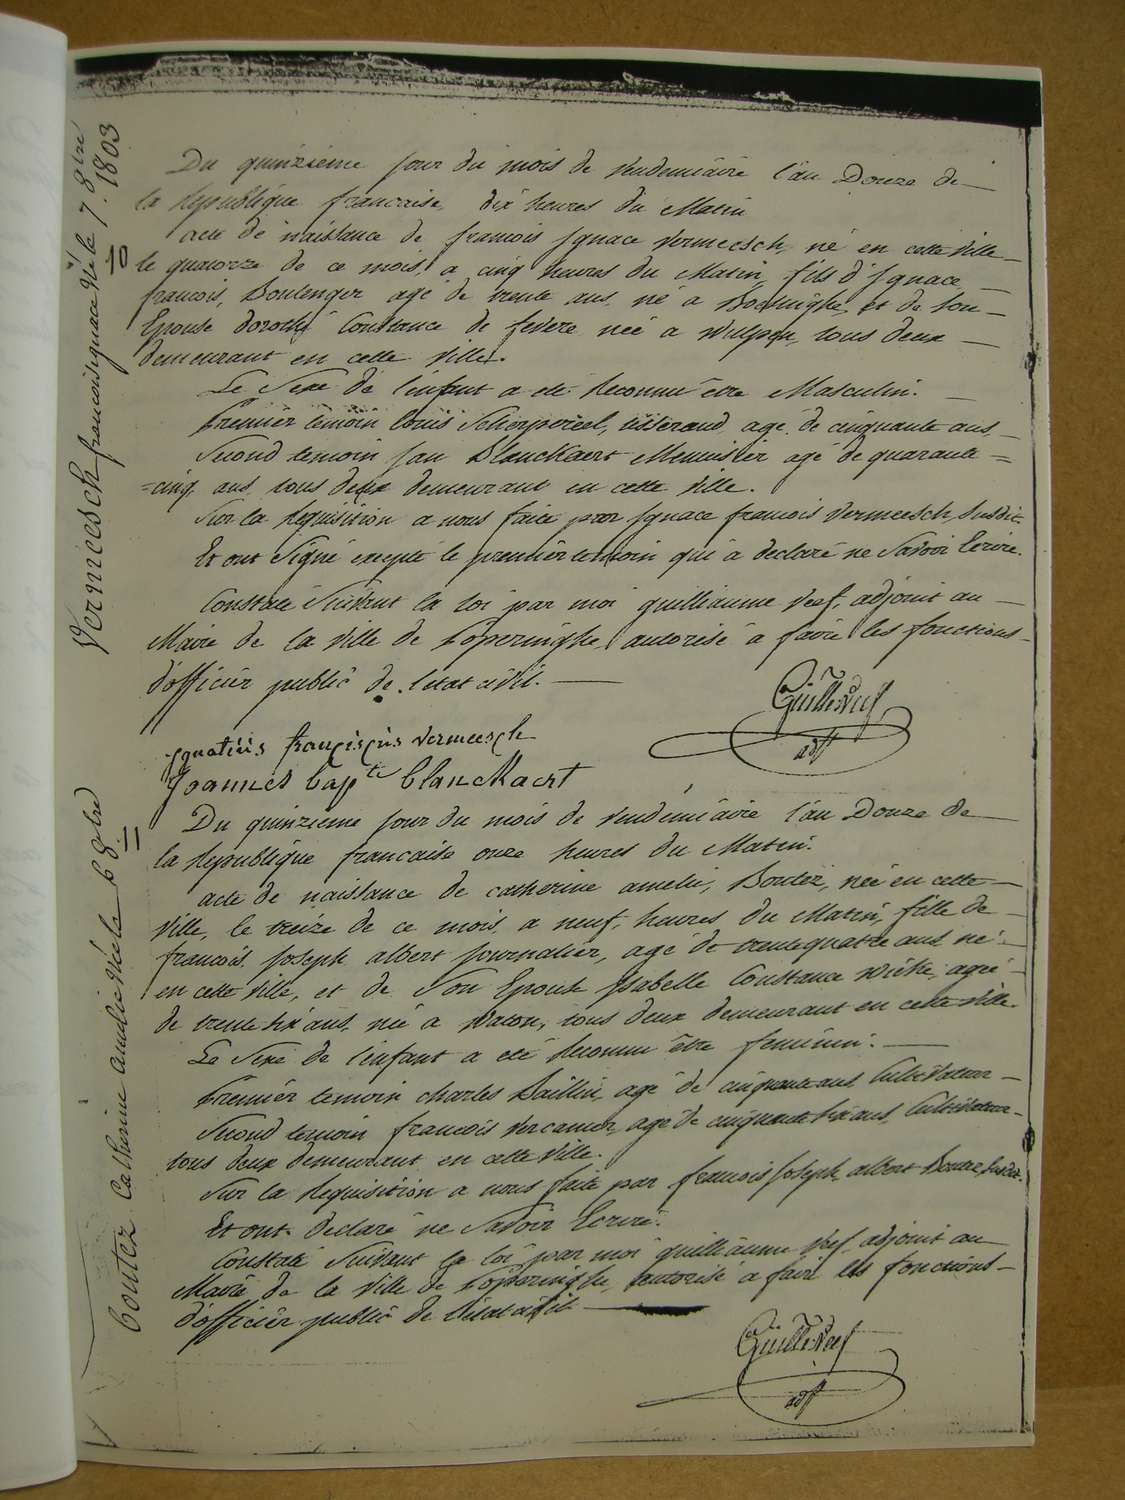 Vermeesch francois ignace Né le 7. 8bre 1803
10
Du quinzieme jour du mois de vendemiaire l'an Douze de
la Republique francaise, dix heures du Matin
acte de naissance de francois Ignace Vermeesch, né en cette ville
le quatorze de ce mois, a cinq heures du Matin, fils d'Ignace
francois, Boulenger agé de trente ans, né a et de Son
Epouse dorothé Constance de fevere née a wulpen, tous deux
demeurant en cette ville.
Le Sexe de l'enfant a eté Reconnu être Masculin.
Premier temoin Louis Scherpereel, tisserand, agé de cinquante ans,
Second temoin Jan Blanckaert Menuisier agé de quarante
cinq ans tous deux demeurant en cette ville.
Sur la Requisition a nous faite par Ignace francois Vermeesch, Susdit
Et ont Signé excepté le premier temoin qui a declaré ne Savoir Ecrire.
Constaté Suivant la Loi par moi guilliaume Veef, adjoint au
Maire de la ville de Poperinghe, autorisé a faire les fonctions
d'officier public de l'etat civil.
Guille Veef
adjt
Ignatius franciscus Vermeesch
Joannes bapte blanckaert
Boutez Catherine amelie Née le 6 8bre
11
Du quinzieme jour du mois de vendemiaire l'an Douze de
la Republique francaise onze heures du Matin.
acte de naissance de catherine amelie, Boutez, née en cette
ville, le treize de ce mois, a neuf, heures du Matin, fille de
francois Joseph albert journalier, agé de trente quatre ans né
en cette ville, et de Son Epouse Isabelle Constance agée
de trente six ans née a Watou, tous deux demeurant en cette ville.
Le Sexe de l'enfant a eté Reconnu être feminin.
Premier temoin charles Baillieu, agé de cinquante ans Cultivateur
Second temoin francois Vercamer, agé de cinquante six ans, Cultivateur
tous deux demeurant en cette ville.
Sur la Requisition a nous faite par francois Joseph albert Boutez Susdit.
Et ont declaré ne Savoir Ecrire.
Constaté Suivant la loi par moi guilliaume Veef, adjoint au
Maire de la ville de Poperinghe, autorisé a faire les fonctions
d'officier public de l'etat civil
Guille Veef
adjt